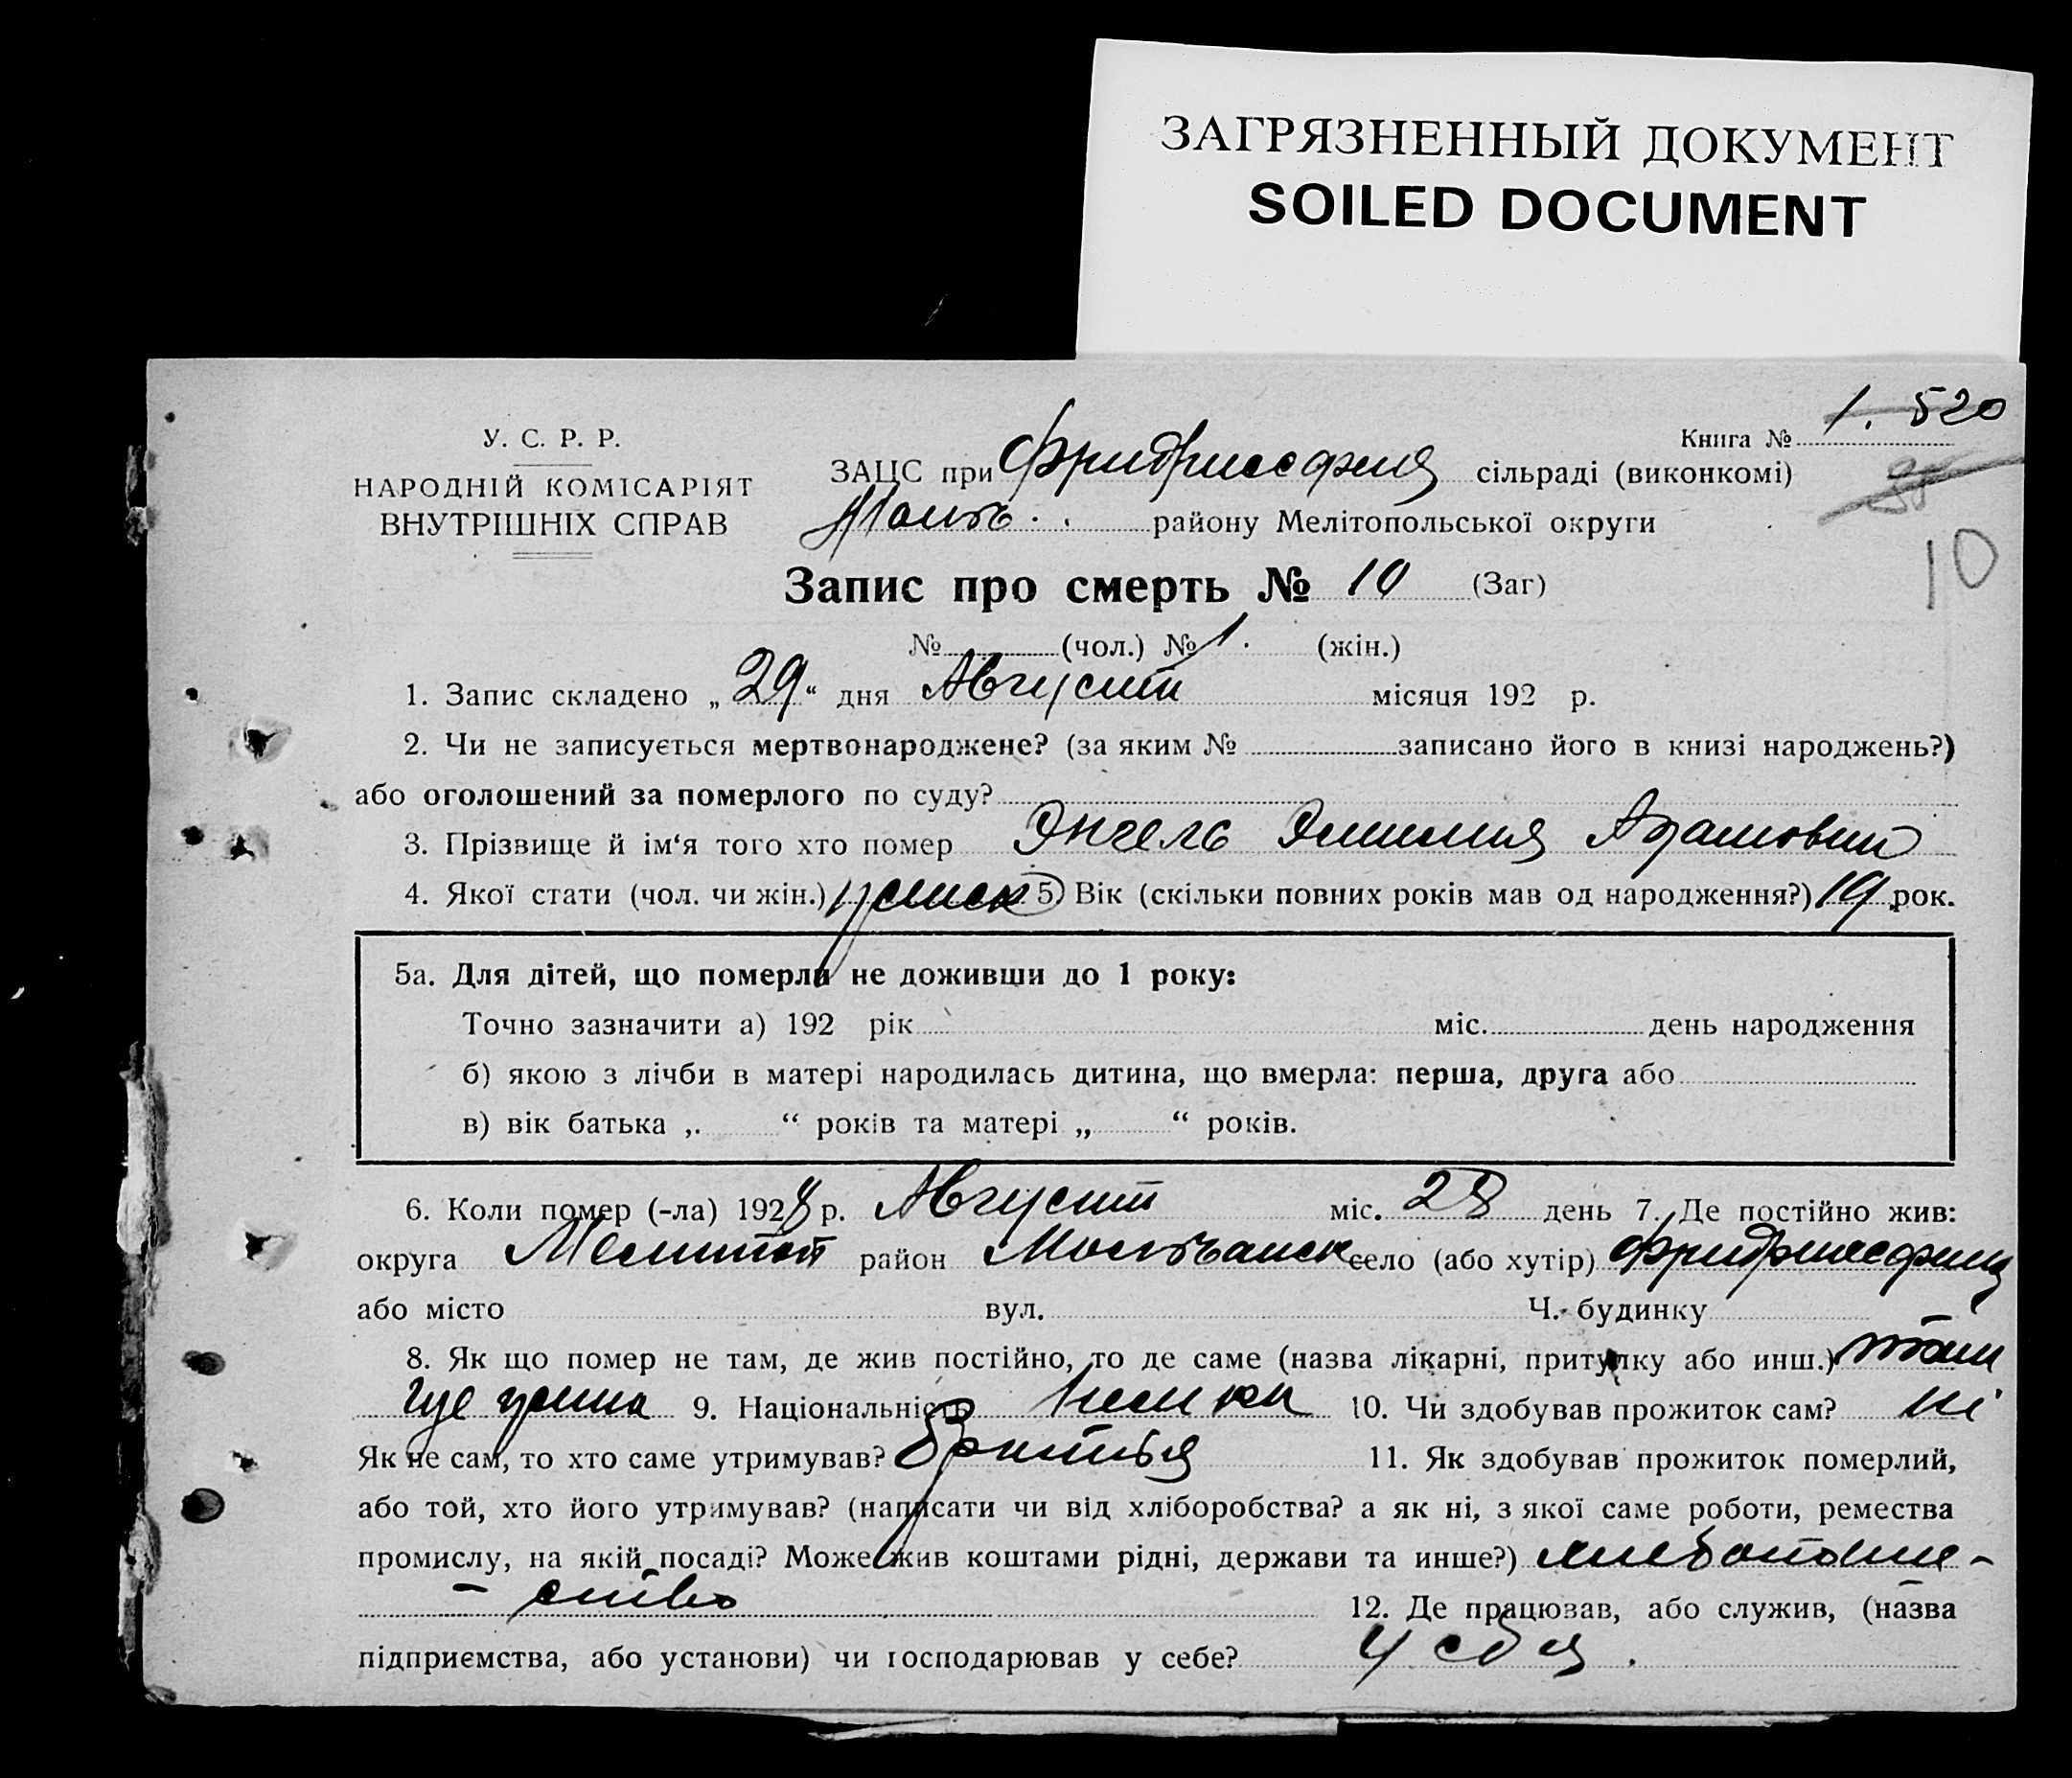 ЗАГРЯЗНЕННЫЙ ДОКУМЕНТ
SOILED DOCUMENT
1. 520
Книга №
У. С. Р. Р.
НАРОДНІЙ КОМІСАРІЯТ
ВНУТРІШНІХ СПРАВ
ЗАЦС при сільраді (виконкомі)
району Мелітопольської округи
10
Запис про смерть № 10 (Заг)
№ (чол.) № 1. (жін.)
1. Запис складено „29“ дня Август місяця 192 р.
2. Чи не записується мертвонароджене? (за яким № записано його в книзі народжень?)
або оголошений за померлого по суду?
3. Прізвище й ім‘я того хто помер Энгель Эмилия Адамовни
4. Якої стати (чол. чи жін.) женск 5) Вік (скільки повних років мав од народження?) 19 рок.
5а. Для дітей, що померли не доживши до 1 року:
Точно зазначити а) 192 рік міс. день народження
б) якою з лічби в матері народилась дитина, що вмерла: перша, друга або
в) вік батька „. “ років та матері „ “ років.
6. Коли помер (-ла) 1928 р. Август міс. 28 день 7. Де постійно жив:
округа Мелитоп район село (або хутір)
або місто вул. Ч. будинку
8. Як що помер не там, де жив постійно, то де саме (назва лікарні, притулку або инш.) там
где жила 9. Національність Немка 10. Чи здобував прожиток сам? ні
Як не сам, то хто саме утримував? Братья 11. Як здобував прожиток померлий,
або той, хто його утримував? (написати чи від хліборобства? а як ні, з якої саме роботи, ремества
промислу, на якій посаді? Може жив коштами рідні, держави та инше?)
- ство 12. Де працював, або служив, (назва
підприємства, або установи) чи господарював у себе? у себя.